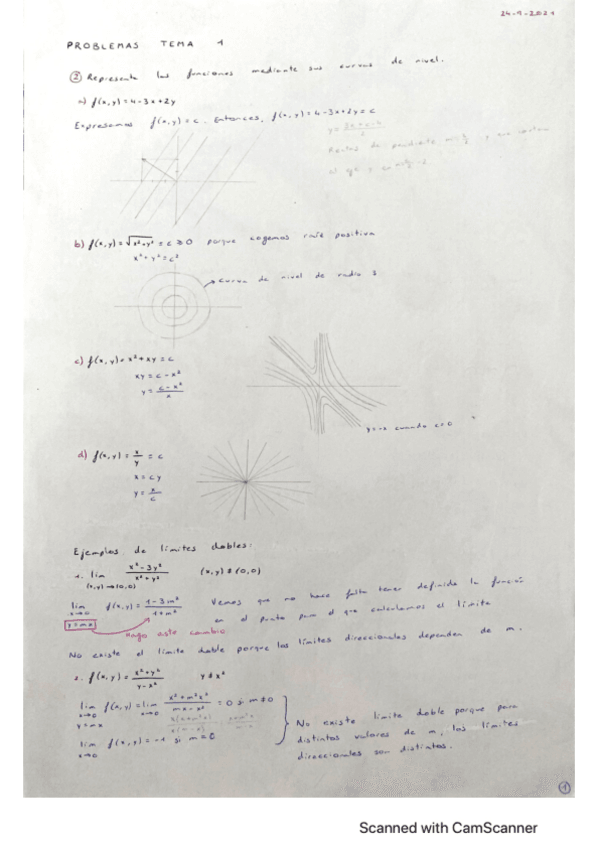 24-9-2021
PROBLEMAS TEMA 1
② Representa las funciones mediante sus curvas de nivel.
a) f(x,y)=4-3x+2y
Expresamos f(x,y)=c. Entonces, f(x,y)=4-3x+2y=c
Rectas de pendiente
b) f(x,y)=√x²+y² = c ≥ 0 porque cogemos raíz positiva
x²+y²=c²
curva de nivel de radio
c) f(x,y)=x²+xy=c
xy=c-x²
y=c-x²/x
y=-x cuando c=0
d) f(x,y)=x/y=c
x=cy
y=x/c
Ejemplos de límites dobles:
1. lim (x,y)→(0,0) x²-3y²/x²+y² (x,y)≠(0,0)
lim x→0 y=mx f(x,y)=1-3m²/1+m² Vemos que no hace falta tener definida la función
en el punto para el que calculamos el límite
Hago este cambio
No existe el límite doble porque los límites direccionales dependen de m.
2. f(x,y)=x²+y²/y-x² y≠x²
lim x→0 y=mx f(x,y)=lim x→0 x²+m²x²/mx-x² =0 si m≠0
lim x→0 f(x,y)=-1 si m=0
No existe límite doble porque para
distintos valores de m, los límites
direccionales son distintos.
1
Scanned with CamScanner